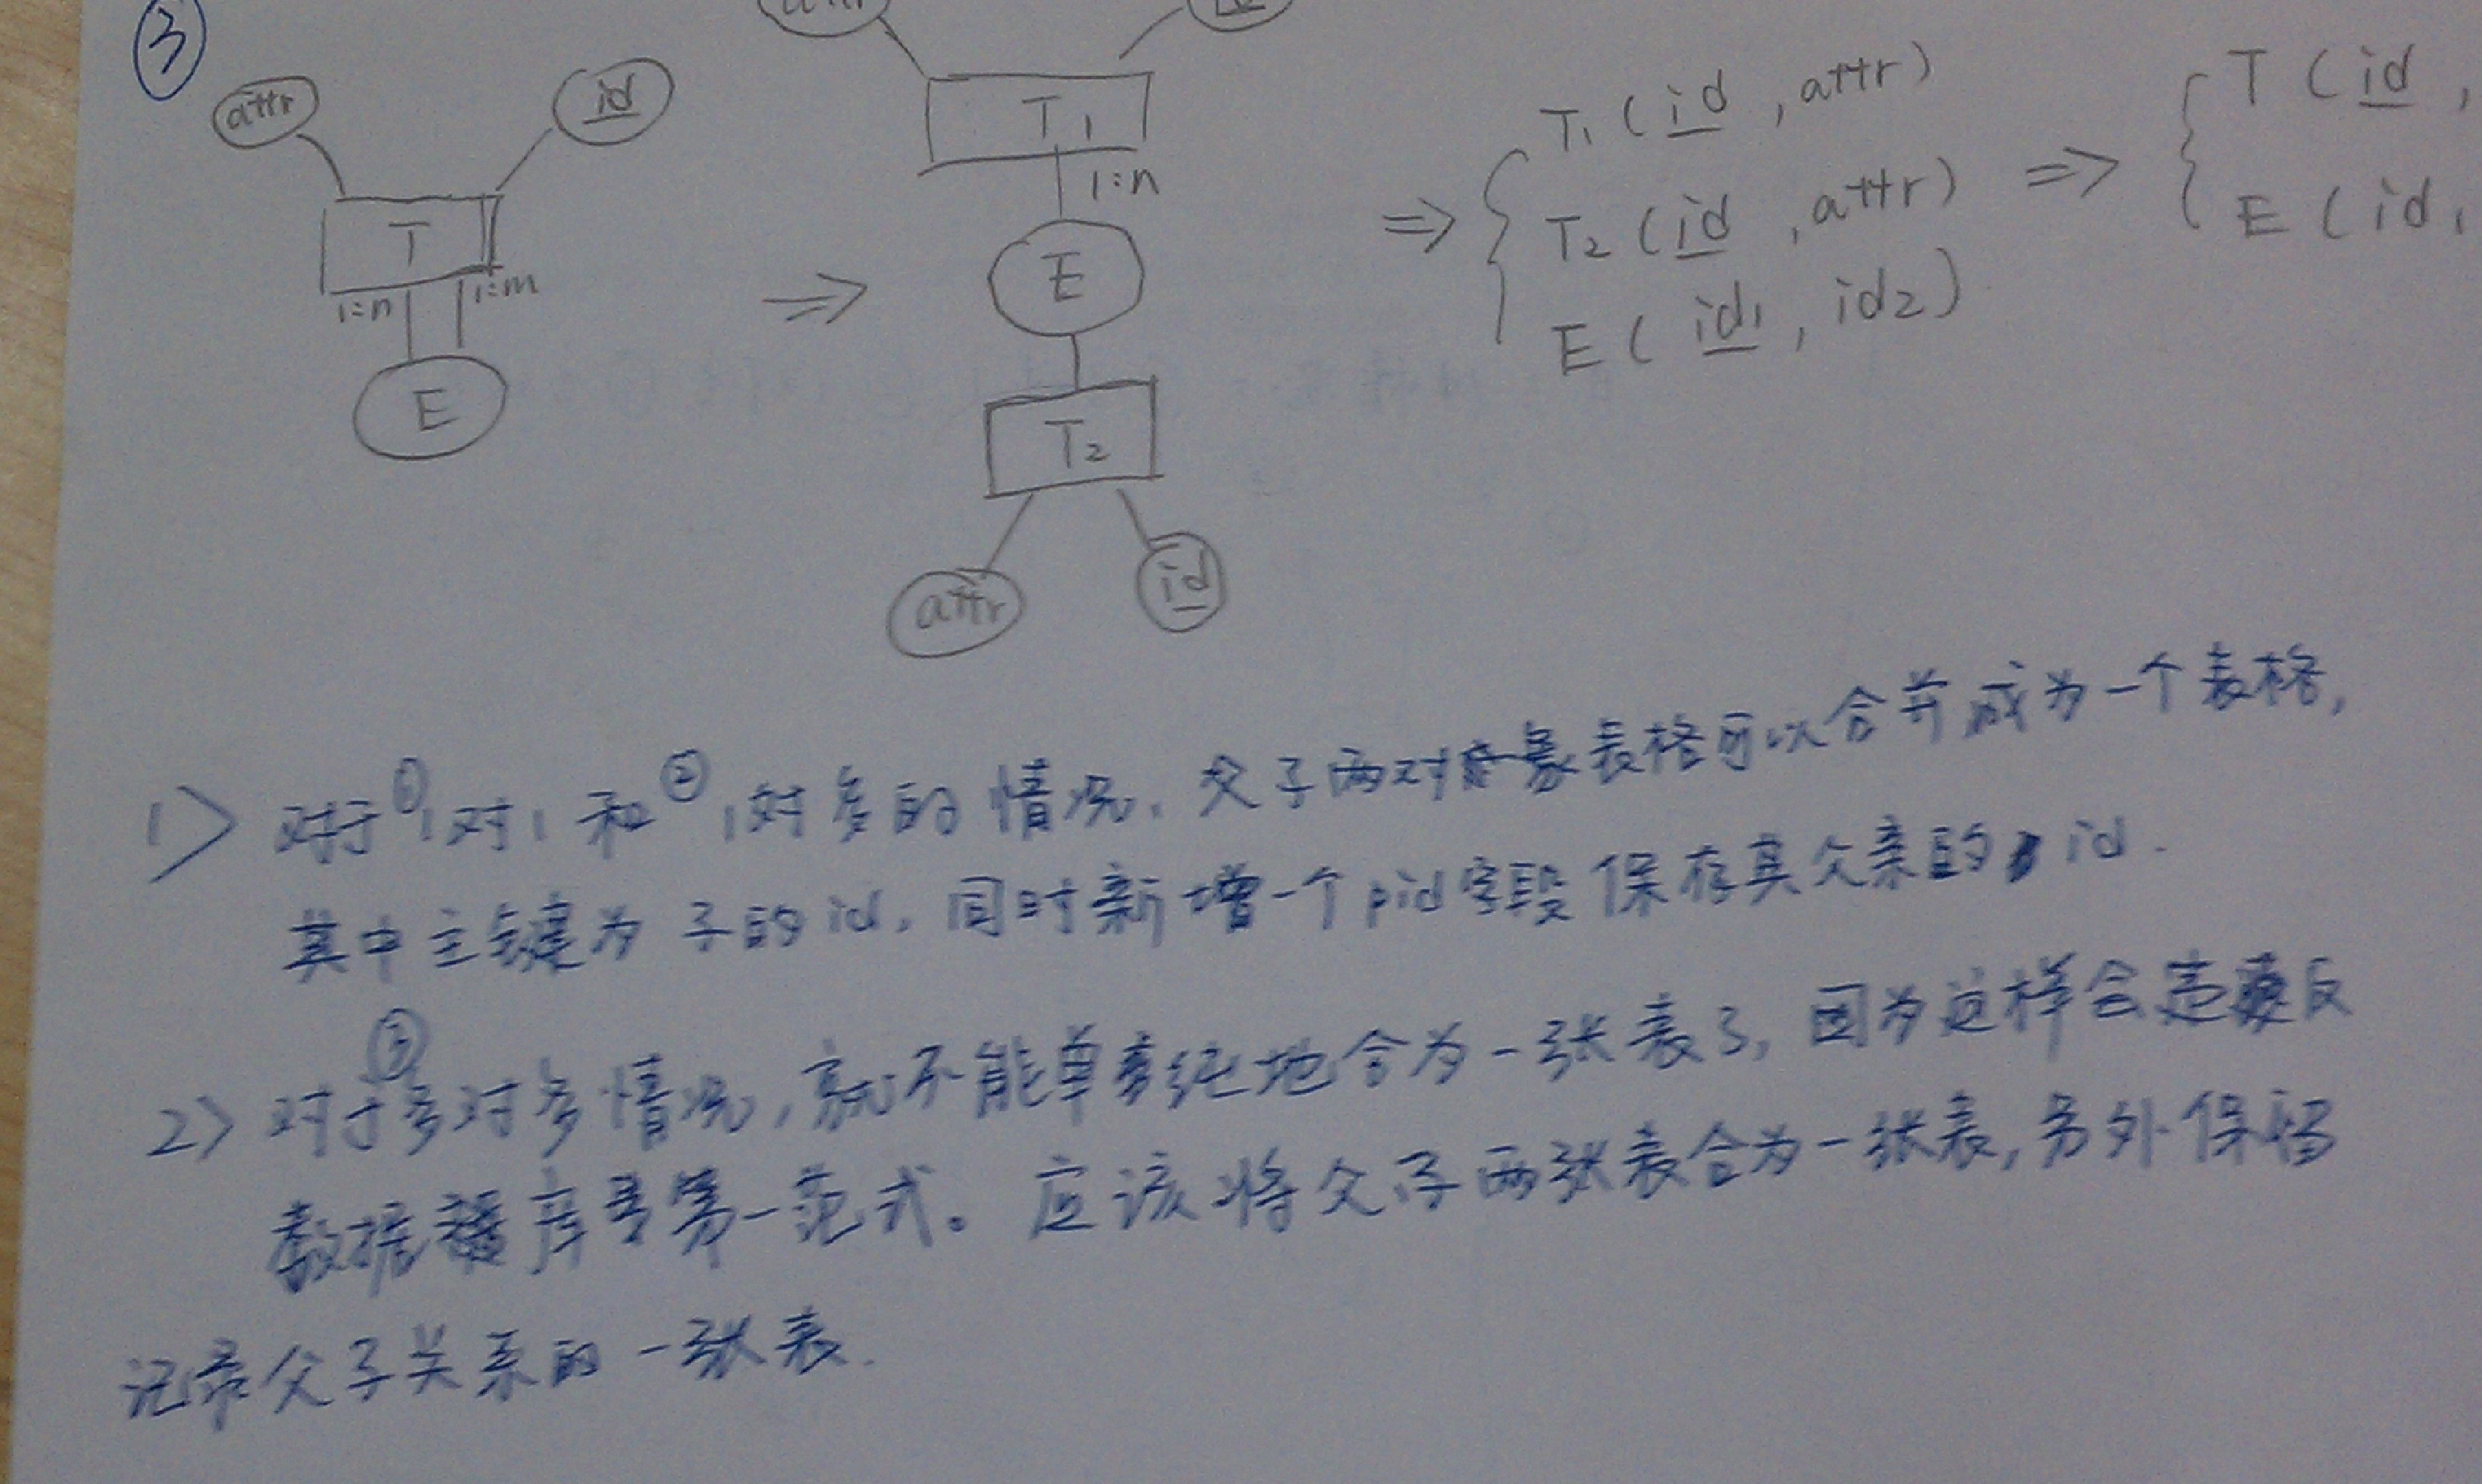 ③
attr
id
T
1:n
1:m
E
attr
T1
1:n
E
T2
attr
id
⇒
⇒ { T1 ( id , attr )
T2 ( id , attr )
E ( id1 , id2 )
⇒ { T ( id ,
E ( id1
1> 对于①1对1和②1对多的情况,父子两对象表格可以合并成为一个表格,
其中主键为子的id,同时新增一个pid字段保存其父亲的id.
2> 对于③多对多情况,就不能单纯地合为一张表了,因为这样会违反
数据库第一范式。应该将父子两张表合为一张表,另外保留
记录父子关系的一张表.